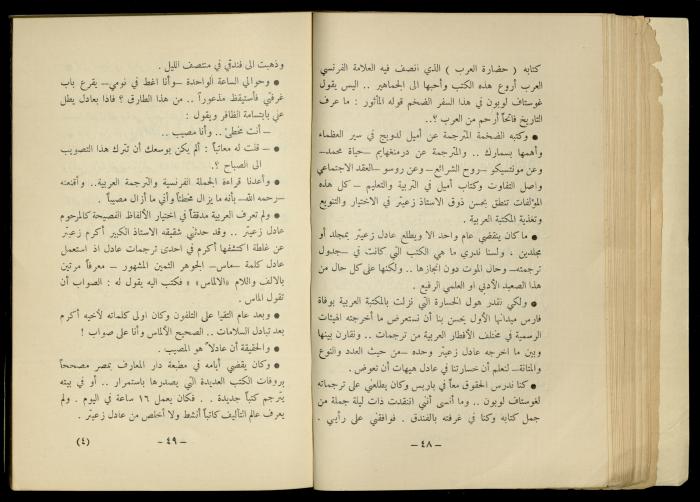 كتابه ( حضارة العرب ) الذي انصف فيه العلامة الفرنسي
العرب أروع هذه الكتب وأحبها الى الجماهير .. اليس يقول
غوستاف لوبون في هذا السفر الضخم قوله المأثور : ما عرف
التاريخ فاتحاً أرحم من العرب ؟..
● وكتبه الضخمة المترجمة عن أميل لدويج في سير العظماء
وأهمها بسمارك .. والمترجمة عن درمنغهايم –حياة محمد–
وعن مونتسيكو –روح الشرائع– وعن روسو –العقد الاجتماعي
واصل التفاوت وكتاب أميل في التربية والتعليم – كل هذه
المؤلفات تنطق بحسن ذوق الاستاذ زعيتر في الاختيار والتنويع
وتغذية المكتبة العربية .
● ما كان ينقضي عام واحد الا ويطلع عادل زعيتر بمجلد أو
مجلدين ، ولسنا ندري ما هي الكتب التي كانت في جدول
ترجمته– وحال الموت دون انجازها .. ولكنها على كل حال من
هذا الصعيد الأدبي او العلمي الرفيع .
● ولكي نقدر هول الخسارة التي نزلت بالمكتبة العربية بوفاة
فارس ميدانها الأول يحسن بنا أن نستعرض ما أخرجته الهيئات
الرسمية في مختلف الأقطار العربية من ترجمات .. ونقارن بينها
وبين ما اخرجه عادل زعيتر وحده –من حيث العدد والنوع
والمتانة– لنعلم أن خسارتنا في عادل هيهات أن تعوض .
● كنا ندرس الحقوق معاً في باريس وكان يطلعني على ترجماته
لغوستاف لوبون .. وما أنسى أنني انتقدت ذات ليلة جملة من
جمل كتابه وكنا في غرفته بالفندق . فوافقني على رأيي .
– ٤٨ –
وذهبت الى فندقي في منتصف الليل .
● وحوالي الساعة الواحدة –وأنا اغط في نومي– يقرع باب
غرفتي فأستيقظ مذعوراً .. من هذا الطارق ؟ فاذا بعادل يطل
علي بابتسامة الظافر ويقول :
– أنت مخطئ .. وأنا مصيب ..
● قلت له معاتباً : ألم يكن بوسعك أن تترك هذا التصويب
الى الصباح ؟.
● وأعدنا قراءة الجملة الفرنسية والترجمة العربية.. وأقنعته
–رحمه الله– بأنه ما يزال مخطئاً وأني ما أزال مصيباً .
● ولم تعرف العربية مدققاً في اختيار الألفاظ الفصيحة كالمرحوم
عادل زعيتر .. وقد حدثني شقيقه الاستاذ الكبير أكرم زعيتر
عن غلطة اكتشفها أكرم في احدى ترجمات عادل اذ استعمل
عادل كلمة –ماس– الجوهر الثمين المشهور – معرفاً مرتين
بالالف واللام «الالماس» فكتب اليه يقول له : الصواب أن
تقول الماس .
● وبعد عام التقيا على التلفون وكان اولى كلماته لأخيه أكرم
بعد تبادل السلامات .. الصحيح الألماس وأنا على صواب !
● والحقيقة أن عادلاً هو المصيب .
● وكان يقضي أيامه في مطبعة دار المعارف بمصر مصححاً
بروفات الكتب العديدة التي يصدرها باستمرار .. أو في بيته
يترجم كتباً جديدة . . فكان يعمل ١٦ ساعة في اليوم . ولم
يعرف عالم التأليف كاتباً أنشط ولا أخلص من عادل زعيتر .
– ٤٩ –
(٤)